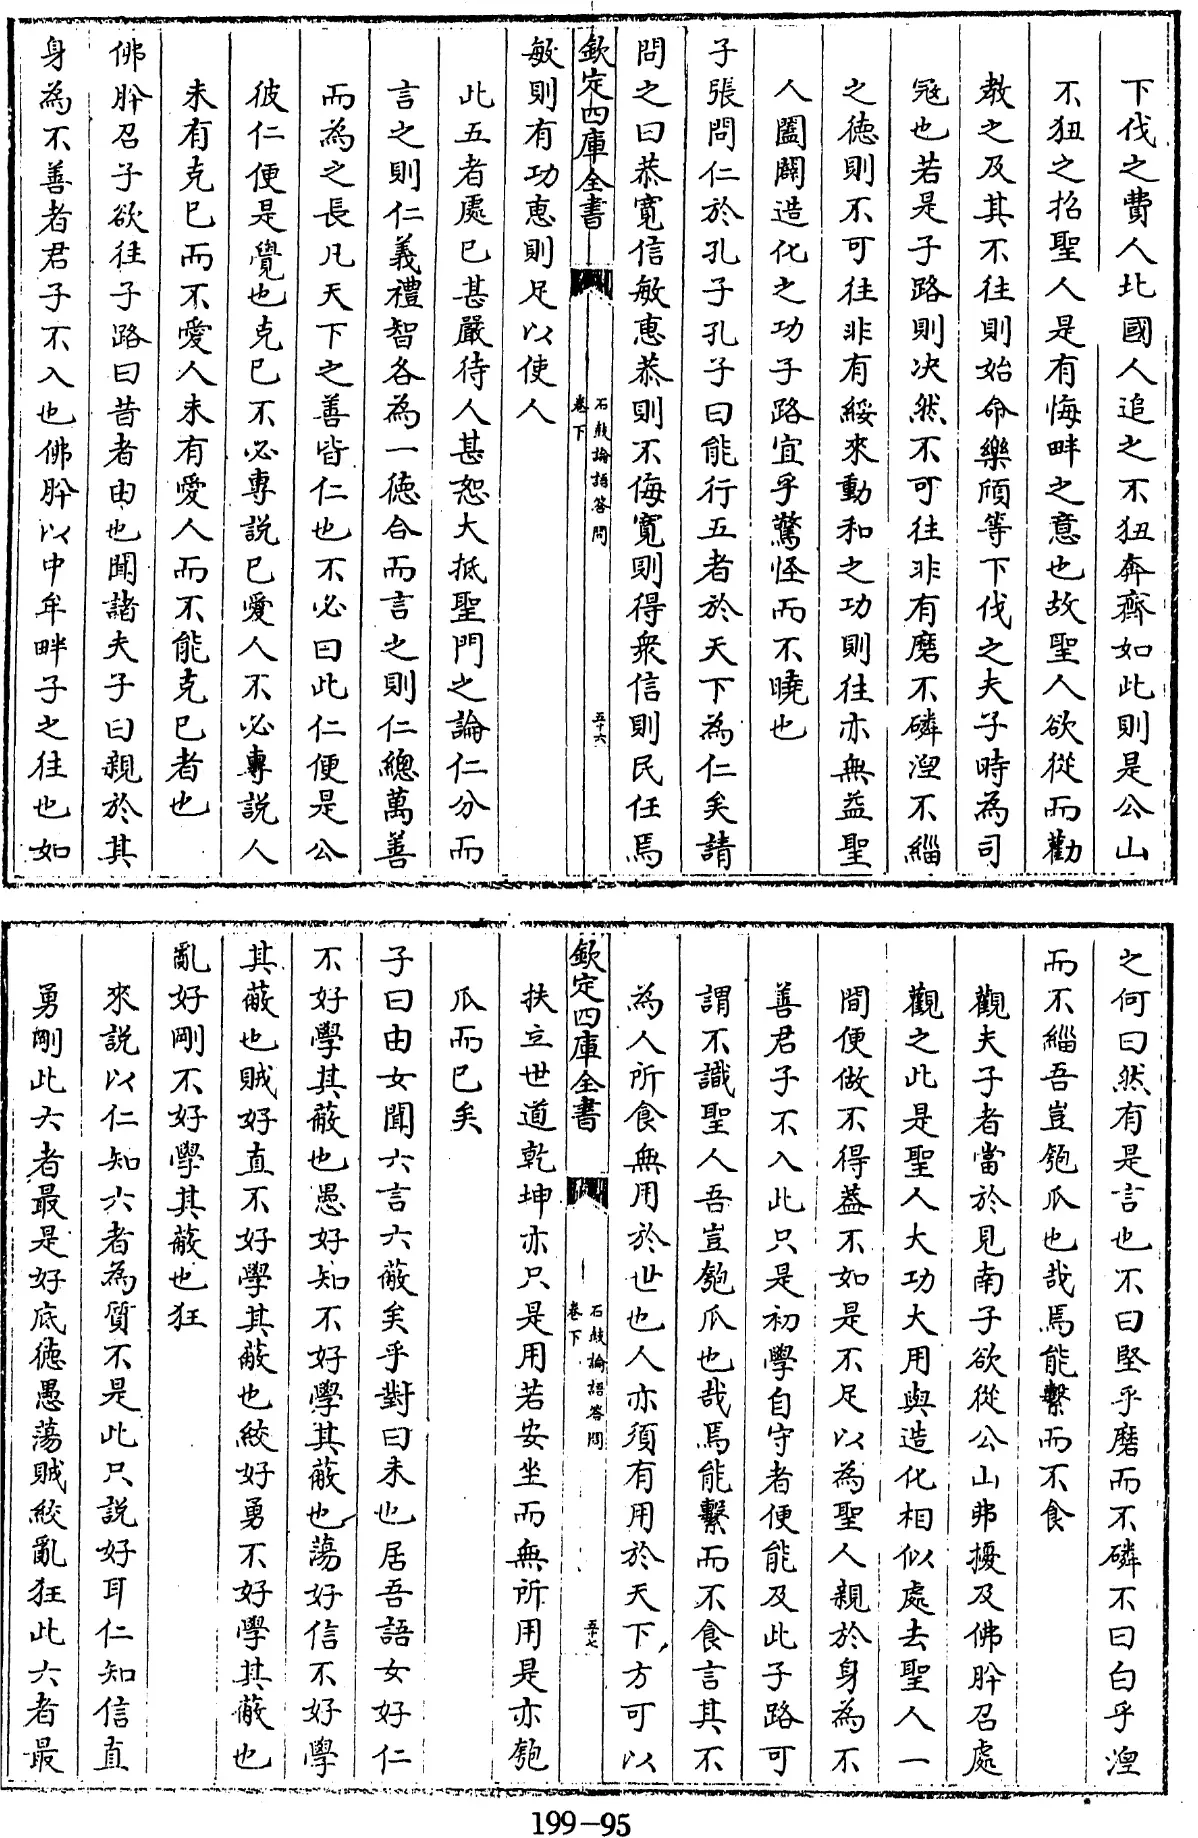 下伐之費人北國人追之不狃奔齊如此則是公山
不狃之招聖人是有悔畔之意也故聖人欲從而勸
教之及其不往則始命樂頎等下伐之夫子時為司
冦也若是子路則决然不可往非有磨不磷湼不緇
之德則不可往非有綏來動和之功則往亦無益聖
人闔闢造化之功子路宜乎驚怪而不曉也
子張問仁於孔子孔子曰能行五者於天下為仁矣請
問之曰恭寛信敏惠恭則不侮寛則得衆信則民任焉
欽定四庫全書
石鼓論語答問
卷下
五十六
敏則有功惠則足以使人
此五者處已甚嚴待人甚恕大抵聖門之論仁分而
言之則仁義禮智各為一德合而言之則仁總萬善
而為之長凡天下之善皆仁也不必曰此仁便是公
彼仁便是覺也克已不必專説已愛人不必專説人
未有克已而不愛人未有愛人而不能克已者也
佛肸召子欲往子路曰昔者由也聞諸夫子曰親於其
身為不善者君子不入也佛肸以中牟畔子之往也如
之何曰然有是言也不曰堅乎磨而不磷不曰白乎湼
而不緇吾豈匏瓜也哉焉能繫而不食
觀夫子者當於見南子欲從公山弗擾及佛肸召處
觀之此是聖人大功大用與造化相似處去聖人一
間便做不得葢不如是不足以為聖人親於身為不
善君子不入此只是初學自守者便能及此子路可
謂不識聖人吾豈匏瓜也哉焉能繫而不食言其不
為人所食無用於世也人亦須有用於天下方可以
欽定四庫全書
石鼓論語答問
卷下
五十七
扶立世道乾坤亦只是用若安坐而無所用是亦匏
瓜而已矣
子曰由女聞六言六蔽矣乎對曰未也居吾語女好仁
不好學其蔽也愚好知不好學其蔽也蕩好信不好學
其蔽也賊好直不好學其蔽也絞好勇不好學其蔽也
亂好剛不好學其蔽也狂
來説以仁知六者為質不是此只説好耳仁知信直
勇剛此六者最是好底德愚蕩賊絞亂狂此六者最
199-95